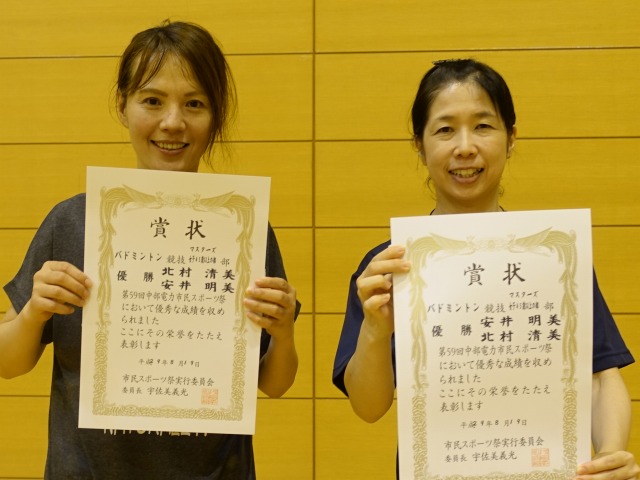 賞状
マスターズ
バドミントン競技
部
優勝 北村 清美
安井 明美
第59回中部電力市民スポーツ祭
において優秀な成績を収め
られました
ここにその栄誉をたたえ
表彰します
市民スポーツ祭実行委員会
委員長 宇佐美義光
賞状
マスターズ
バドミントン競技
部
優勝 安井 明美
北村 清美
第59回中部電力市民スポーツ祭
において優秀な成績を収め
られました
ここにその栄誉をたたえ
表彰します
市民スポーツ祭実行委員会
委員長 宇佐美義光